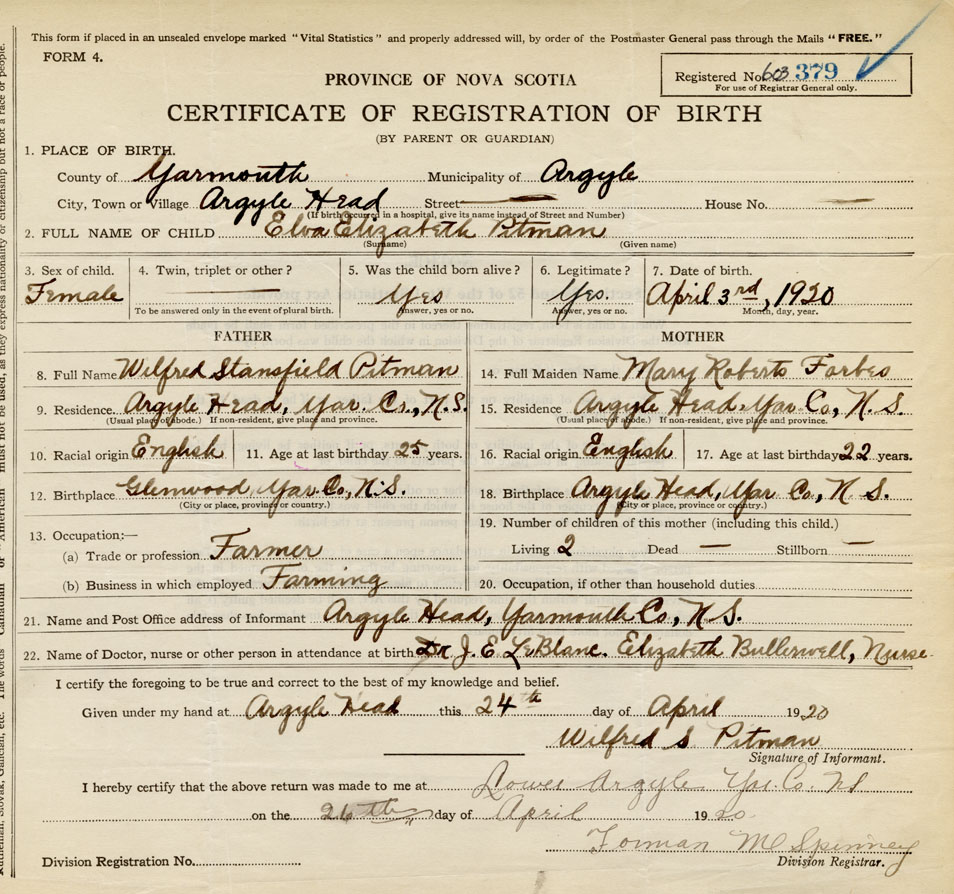 This form if placed in an unsealed envelope marked "Vital Statistics" and properly addressed will, by order of the Postmaster General pass through the Mails "FREE."
FORM 4.
PROVINCE OF NOVA SCOTIA
Registered No. 603 379
For use of Registrar General only.
CERTIFICATE OF REGISTRATION OF BIRTH
(BY PARENT OR GUARDIAN)
1. PLACE OF BIRTH.
County of Yarmouth Municipality of Argyle
City, Town or Village Argyle Head Street — House No. —
(If birth occurred in a hospital, give its name instead of Street and Number)
2. FULL NAME OF CHILD Elva Elizabeth Pitman
(Surname) (Given name)
3. Sex of child. 4. Twin, triplet or other? 5. Was the child born alive? 6. Legitimate? 7. Date of birth.
Female — Yes Yes. April 3rd, 1920
To be answered only in the event of plural birth. Answer, yes or no. Answer, yes or no. Month, day, year.
FATHER MOTHER
8. Full Name Wilfred Stansfield Pitman 14. Full Maiden Name Mary Roberts Forbes
9. Residence. Argyle Head, Yar. Co., N.S. 15. Residence Argyle Head, Yar Co, N.S.
(Usual place of abode.) If non-resident, give place and province. (Usual place of abode.) If non-resident, give place and province.
10. Racial origin English 11. Age at last birthday 25 years. 16. Racial origin English 17. Age at last birthday 22 years.
12. Birthplace Glenwood, Yar. Co, N.S. 18. Birthplace Argyle Head, Yar. Co., N.S.
(City or place, province or country.) (City or place, province or country.)
13. Occupation;— 19. Number of children of this mother (including this child.)
(a) Trade or profession Farmer Living 2 Dead — Stillborn —
(b) Business in which employed Farming 20. Occupation, if other than household duties
21. Name and Post Office address of Informant Argyle Head, Yarmouth Co, N.S.
22. Name of Doctor, nurse or other person in attendance at birth Dr J. E. LeBlanc. Elizabeth Bullerwell, Nurse
I certify the foregoing to be true and correct to the best of my knowledge and belief.
Given under my hand at Argyle Head this 24th day of April 1920
Wilfred S. Pitman
Signature of Informant.
I hereby certify that the above return was made to me at Lower Argyle Yar. Co. NS
on the 26th day of April 1920
Forman McSpinney
Division Registration No. Division Registrar.